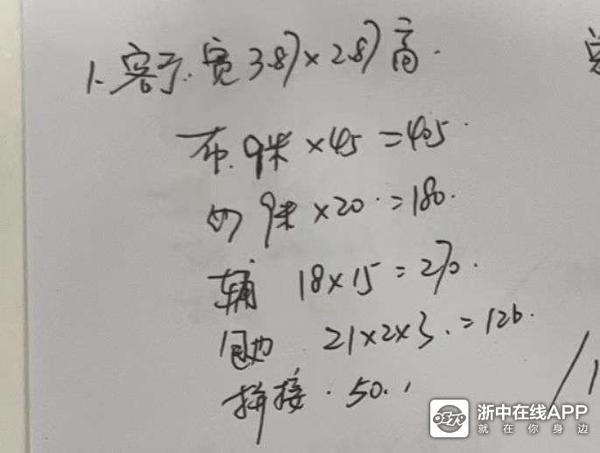 1. 客厅. 宽 3.87×2.87高.
布. 9米×45=405.
纱 9米×20.=180.
辅 18×15=270.
包边 21×2×3.=126.
拼接. 50.
浙中在线APP
就在你身边